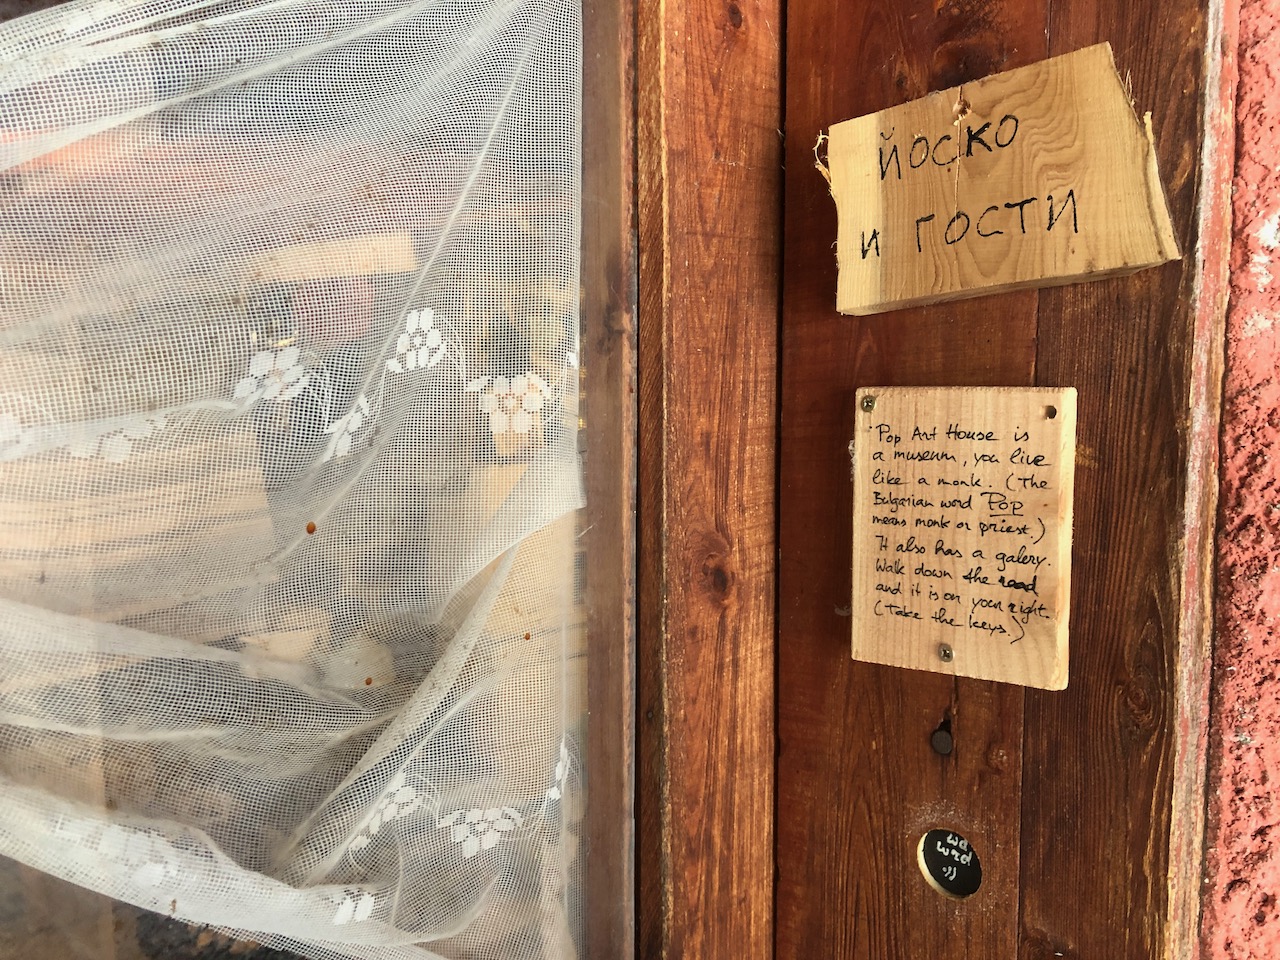 йоско
и гости
Pop Art House is
a museum, you live
like a monk. (The
Bulgarian word Pop
means monk or priest.)
It also has a galery.
Walk down the road
and it is on your right.
(Take the keys.)